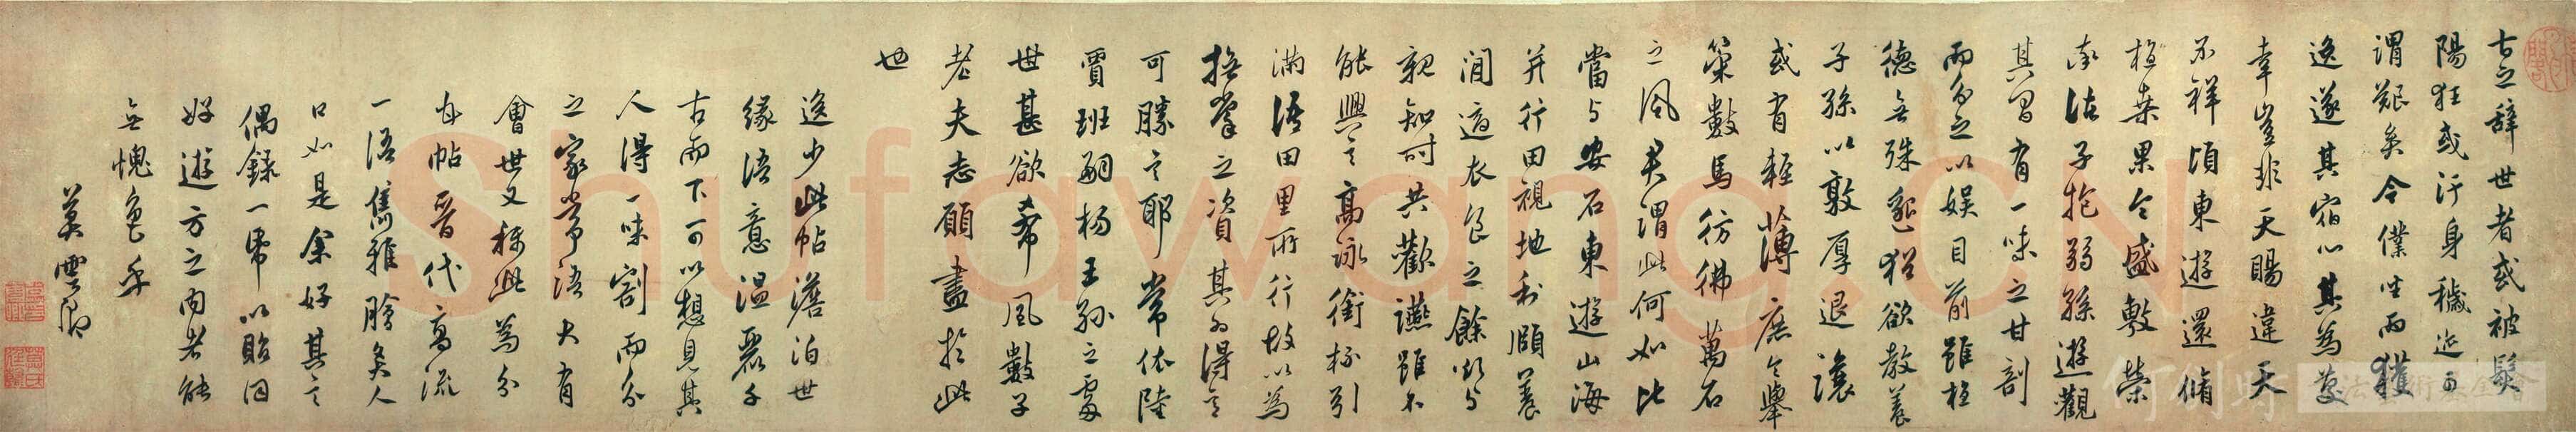 古之辞世者或被髮
陽狂或汙身穢迹可
謂艱矣今僕坐而獲
逸遂其宿心其為慶
幸豈非天賜違天
不祥頃東遊還脩
植桑果今盛敷榮
率諸子抱弱孫遊觀
其間有一味之甘割
而分之以娛目前雖植
德無殊邈猶欲教養
子孫以敦厚退讓
或有輕薄庶令舉
策數馬彷彿萬石
之風君謂此何如比
當與安石東遊山海
并行田視地利頤養
閒適衣食之餘欲與
親知時共歡讌雖不
能興言高詠銜杯引
滿語田里所行故以為
撫掌之資其為得意
可勝言耶常依陸
賈班嗣楊王孫之處
世甚欲希風數子
老夫志願盡於此
也
逸少此帖澹泊世
緣語意溫麗千
古而下可以想見其
人得一味割而分
之家常語大有
會世又稱此為分
甘帖晉代高流
一語雋雅膾炙人
口如是余好其言
偶錄一帋以貽同
好遊方之內者能
無愧色乎
莫雲卿
shufawang.cn